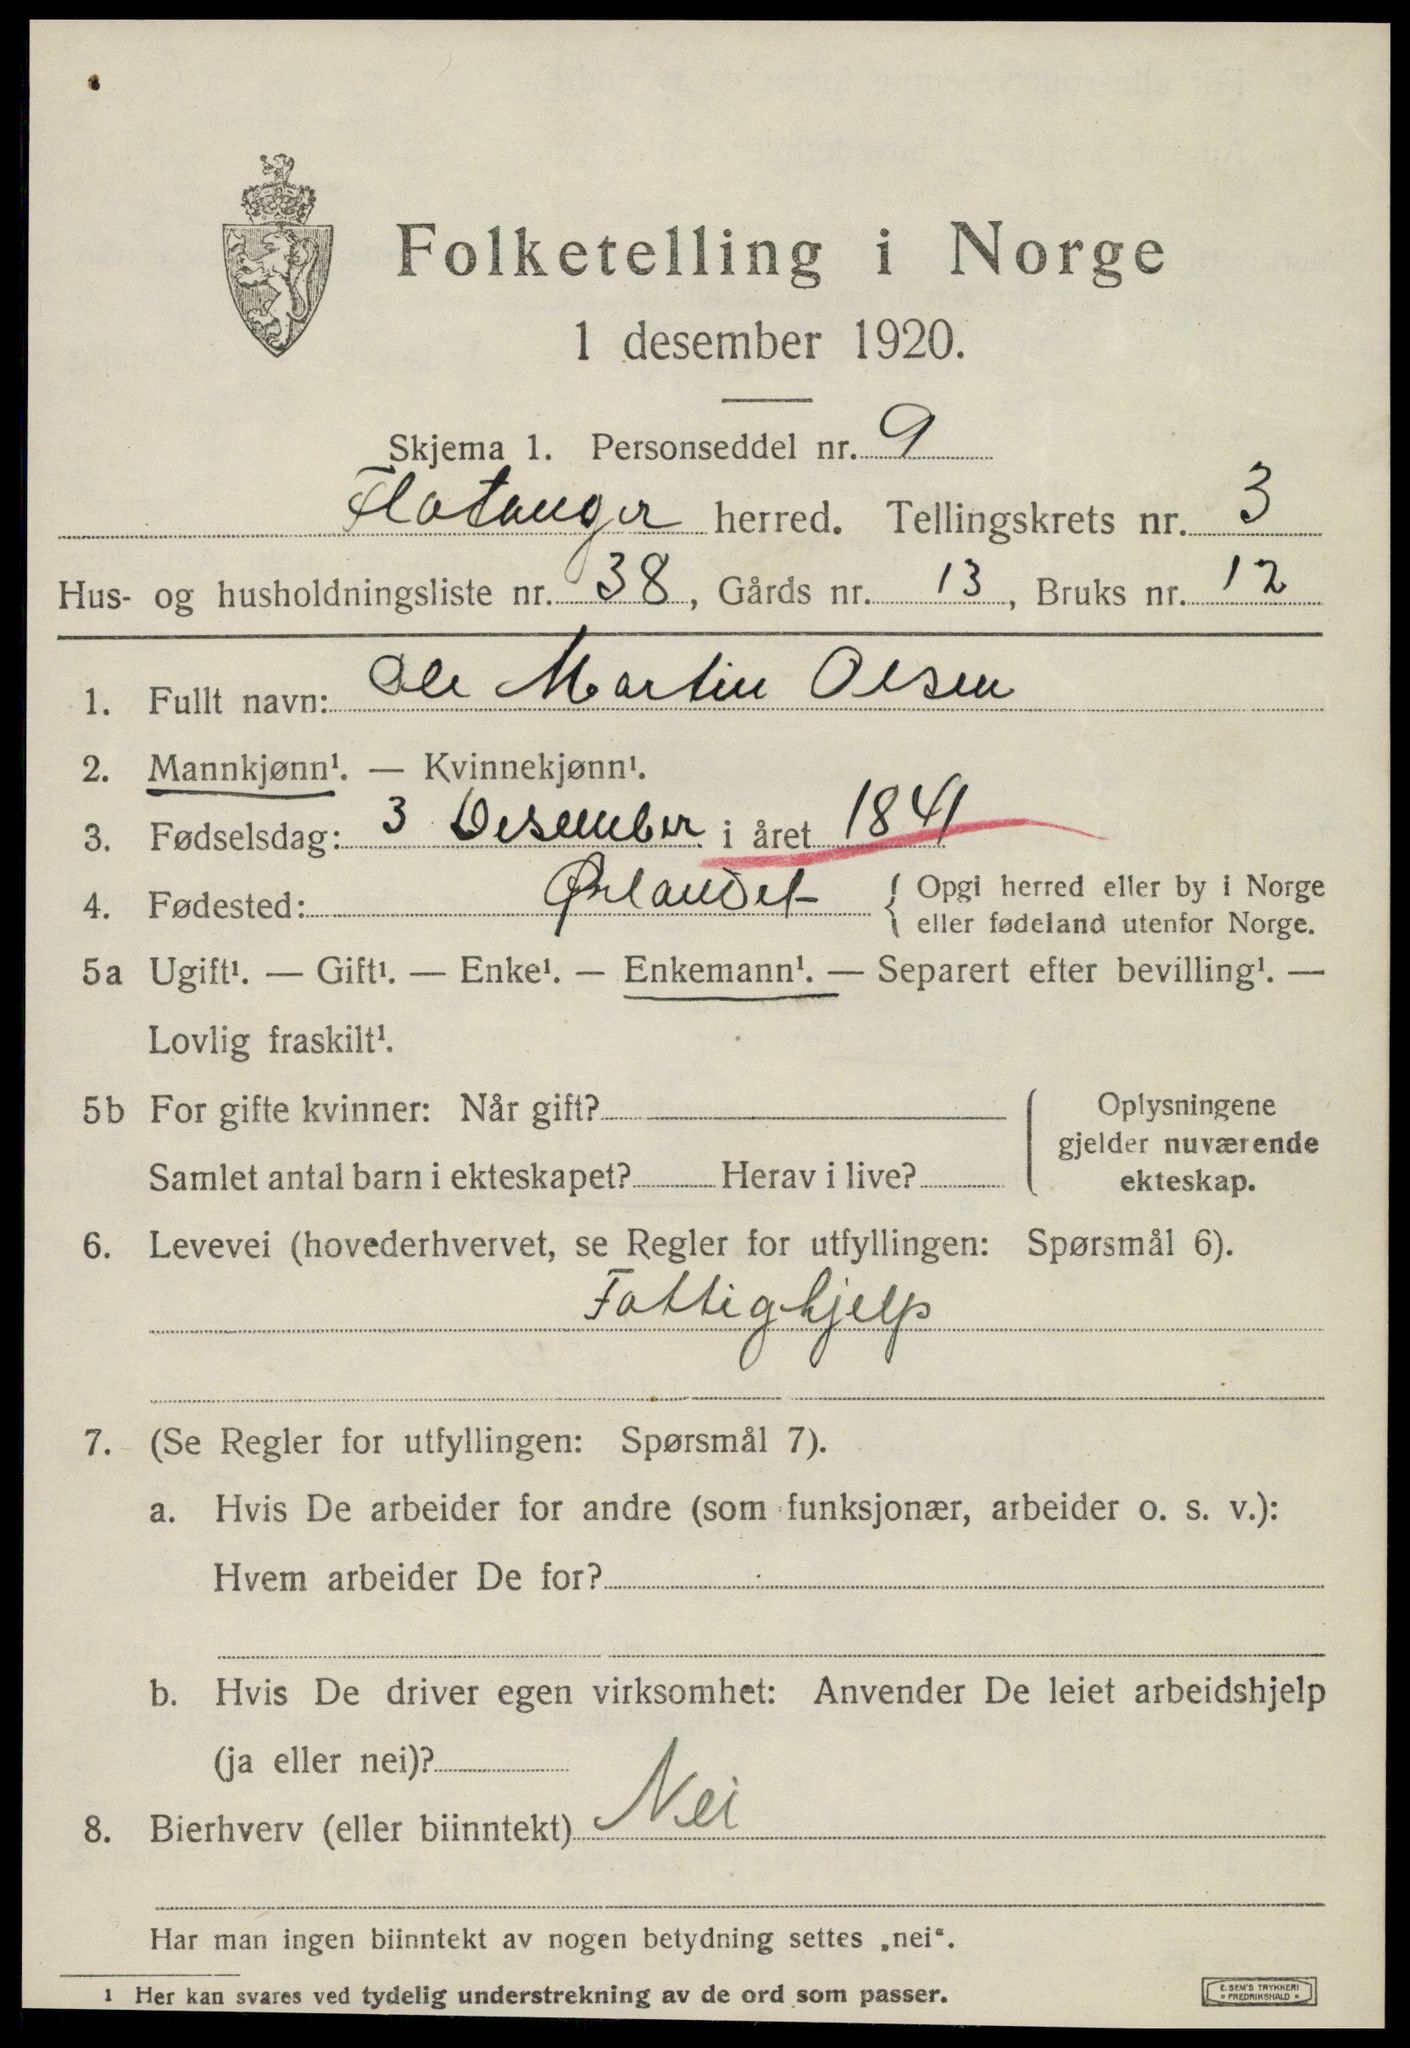 Folketelling i Norge
1 desember 1920.
Skjema 1. Personseddel nr. 9
Flatanger herred. Tellingskrets nr. 3
Hus- og husholdningsliste nr. 38, Gårds nr. 13, Bruks nr. 12
1. Fullt navn: Ole Martin Olsen
2. Mannkjønn¹. — Kvinnekjønn¹.
3. Fødselsdag: 3 Desember i året 1841
4. Fødested: Ørlandet { Opgi herred eller by i Norge
eller fødeland utenfor Norge.
5a Ugift¹. — Gift¹. — Enke¹. — Enkemann¹. — Separert efter bevilling¹. —
Lovlig fraskilt¹.
5b For gifte kvinner: Når gift?
Samlet antal barn i ekteskapet? Herav i live?
Oplysningene
gjelder nuværende
ekteskap.
6. Levevei (hovederhvervet, se Regler for utfyllingen: Spørsmål 6).
Fattighjelp
7. (Se Regler for utfyllingen: Spørsmål 7).
a. Hvis De arbeider for andre (som funksjonær, arbeider o. s. v.):
Hvem arbeider De for?
b. Hvis De driver egen virksomhet: Anvender De leiet arbeidshjelp
(ja eller nei)?
8. Bierhverv (eller biinntekt) Nei
Har man ingen biinntekt av nogen betydning settes „nei“.
1 Her kan svares ved tydelig understrekning av de ord som passer.
E. SEM'S TRYKKERI
FREDRIKSHALD